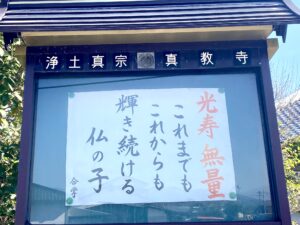 浄土真宗 真教寺
光寿無量
これまでも
これからも
輝き続ける
仏の子
合掌